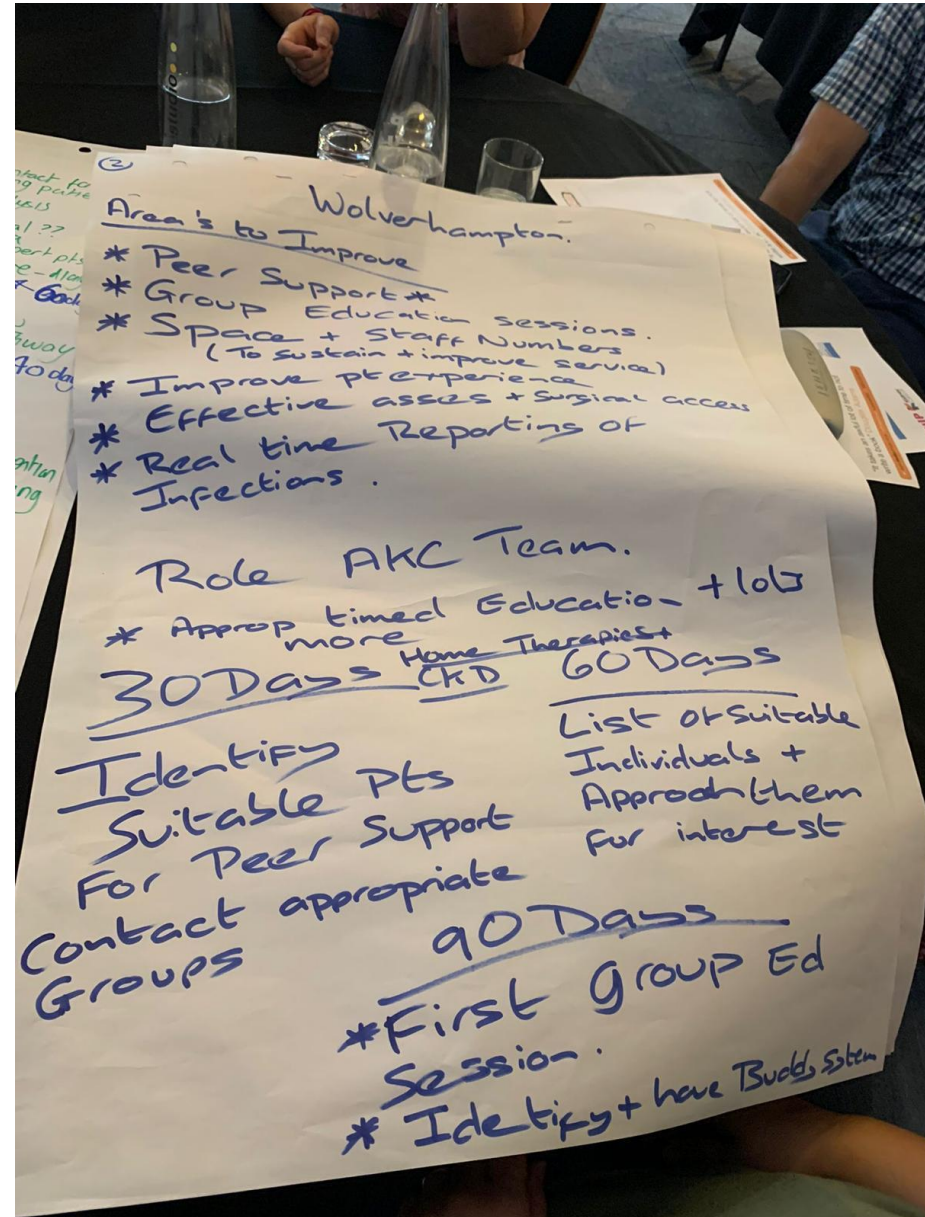 studio
(2)
Wolverhampton.
Area's to Improve
* Peer Support *
* Group Education sessions.
* Space + Staff Numbers
(To sustain + improve service)
* Improve pt experience
* Effective asses + surgical access
* Real time Reporting of
Infections.
Role AKC Team.
* Approp timed Education + lots
more
30 Days
Home Therapies +
CKD
Identify
Suitable Pts
For Peer Support
Contact appropriate
Groups
60 Days
List of Suitable
Individuals +
Approach them
for interest
90 Days
* First group Ed
Session.
* Identify + have Buddy System